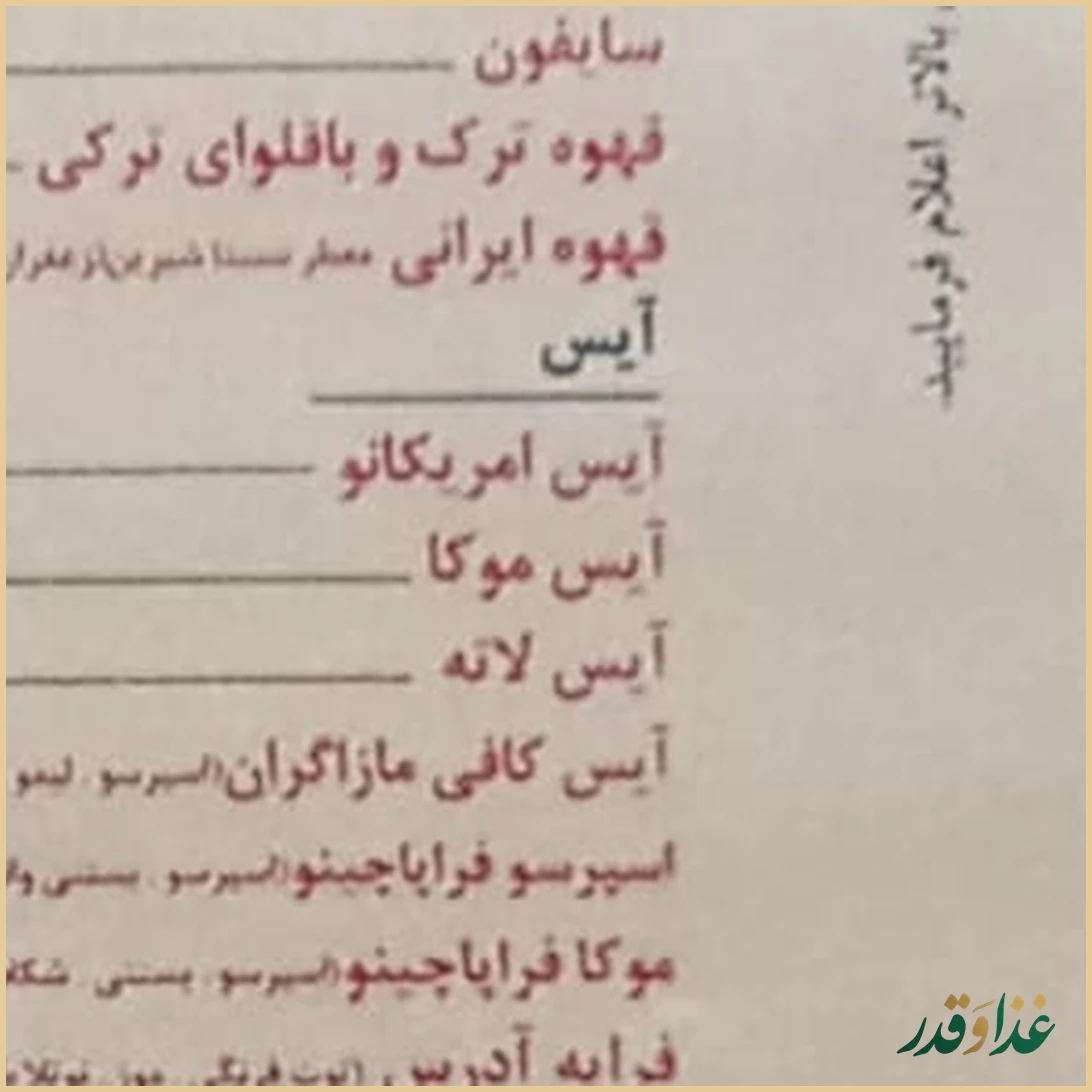 سایفون
قهوه ترک و باقلوای ترکی
قهوه ایرانی معطر شیرین
آیس
آیس امریکانو
آیس موکا
آیس لاته
آیس کافی مازاگران (اسپرسو . لیمو
اسپرسو فراپاچینو (اسپرسو . بستنی
موکا فراپاچینو (اسپرسو . بستنی .
فراپه آدرس (توت فرنگی . موز .
بالاتر اعلام فرمایید
غذا و قدر